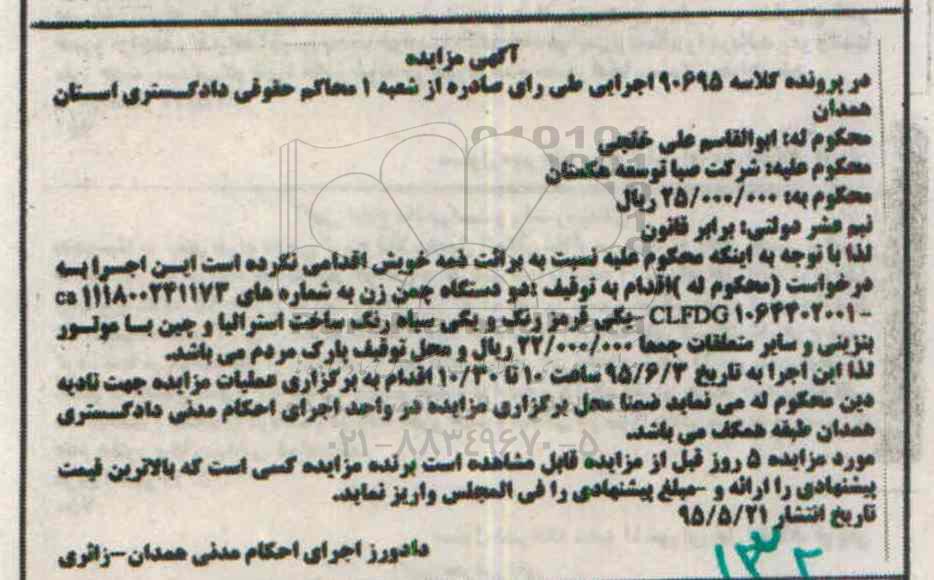 آگهی مزایده
در پرونده کلاسه ۹۰۶۹۵ اجرایی طی رای صادره از شعبه ۱ محاکم حقوقی دادگستری استان
همدان
محکوم له: ابوالقاسم علی خلجی
محکوم علیه: شرکت صبا توسعه هگمتان
محکوم به: ۲۵/۰۰۰/۰۰۰ ریال
نیم عشر دولتی: برابر قانون
لذا با توجه به اینکه محکوم علیه نسبت به برائت ذمه خویش اقدامی نکرده است این اجرا به
درخواست (محکوم له )اقدام به توقیف :دو دستگاه چمن زن به شماره های cs ۱۱۱۸۰۰۲۴۱۱۷۳
-CLFDG ۱۰۶۴۴۰۲۰۰۱ -یکی قرمز رنگ و یکی سیاه رنگ ساخت استرالیا و چین با موتور
بنزینی و سایر متعلقات جمعا ۲۲/۰۰۰/۰۰۰ ریال و محل توقیف پارک مردم می باشد.
لذا این اجرا به تاریخ ۹۵/۶/۳ ساعت ۱۰ تا ۱۰/۳۰ اقدام به برگزاری عملیات مزایده جهت تادیه
دین محکوم له می نماید ضمنا محل برگزاری مزایده در واحد اجرای احکام مدنی دادگستری
همدان طبقه همکف می باشد.
۰۲۱-۸۸۳۴۹۶۷۰-۵
مورد مزایده ۵ روز قبل از مزایده قابل مشاهده است برنده مزایده کسی است که بالاترین قیمت
پیشنهادی را ارائه و -مبلغ پیشنهادی را فی المجلس واریز نماید.
تاریخ انتشار ۹۵/۵/۲۱
دادورز اجرای احکام مدنی همدان-زائری